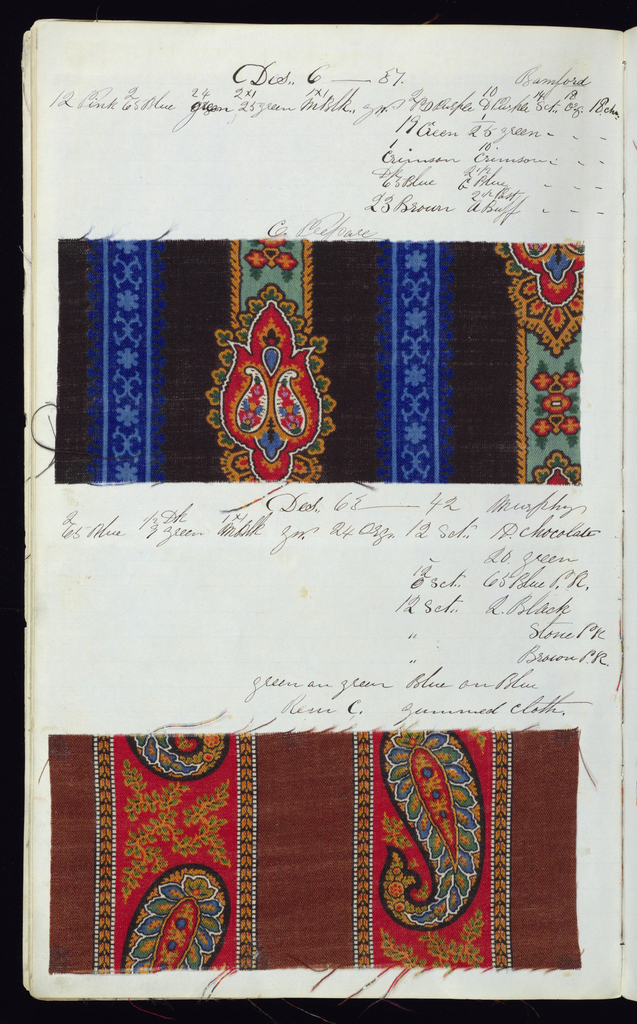 Des. 6 — 87. Bamford
12 Pink 2/65 Blue 24 green 2x1 25 green 1x1 M Blk. gr. 2 Purple 10 D Purple 14 Sct. 18 Org. 18 cho.
19 Green 1/25 green - - -
1 Crimson 10 Crimson - - -
Dk 63 Blue Blue - - -
23 Brown Buff - - -
C. Prepare
Des. 68 — 42 Murphy
2/65 Blue Dk green M Blk gr. 24 Org. 12 Sct. D. chocolate
20 green
12/6 Sct. 65 Blue P.R.
12 Sct. 2. Black
" Stone P.R
" Brown P.R.
green on green Blue on Blue
C. gummed cloth.